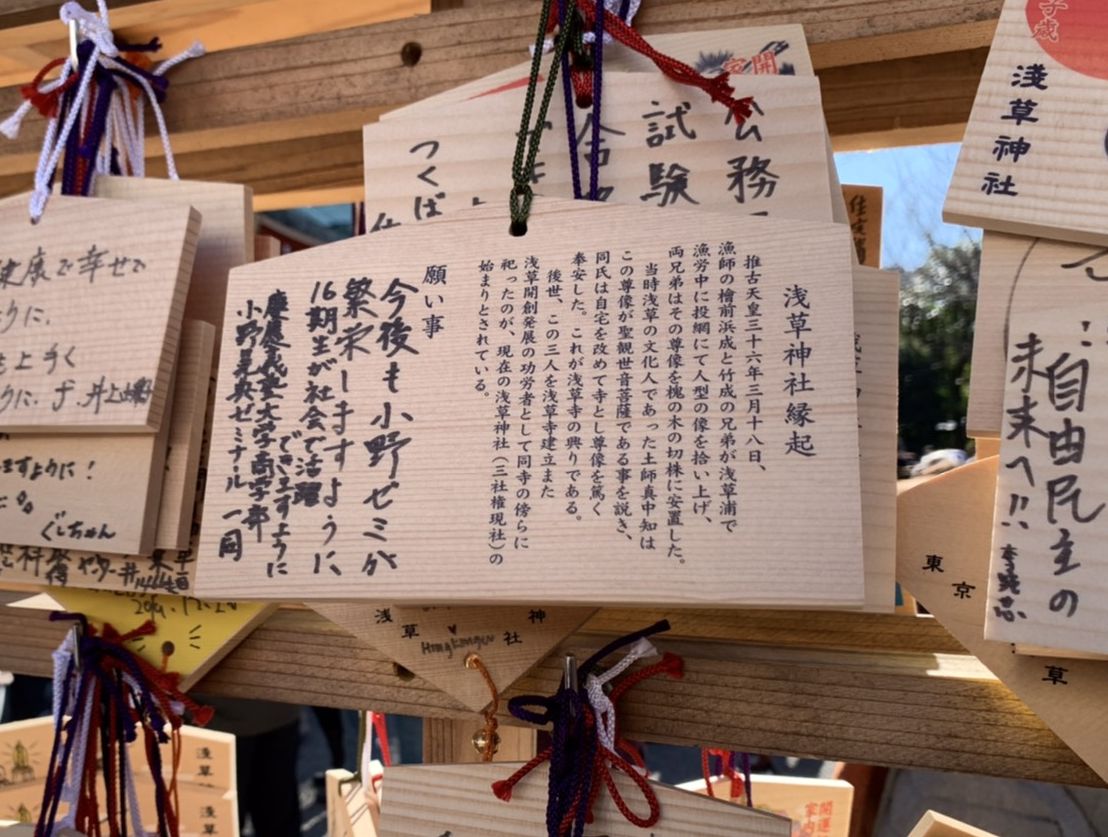 浅草神社縁起
推古天皇三十六年三月十八日、
漁師の檜前浜成と竹成の兄弟が浅草浦で
漁労中に投網にて人型の像を拾い上げ、
両兄弟はその尊像を槐の木の切株に安置した。
当時浅草の文化人であった土師真中知は
この尊像が聖観世音菩薩である事を説き、
同氏は自宅を改めて寺とし尊像を篤く
奉安した。これが浅草寺の興りである。
後世、この三人を浅草寺建立また
浅草開創発展の功労者として同寺の傍らに
祀ったのが、現在の浅草神社(三社権現社)の
始まりとされている。
願い事
今後も小野ゼミが
繁栄しますように
16期生が社会で活躍
できますように
慶應義塾大学商学部
小野晃典ゼミナール一同
公務
試験
合
つくば
浅草神社
自由民主の
未来へ!!
健康で幸せで
うに、
も上手く
うに.
ますように!
ぐしちゃん
浅草
神社
Hongkonger
東京
草
浅草
浅草
開運